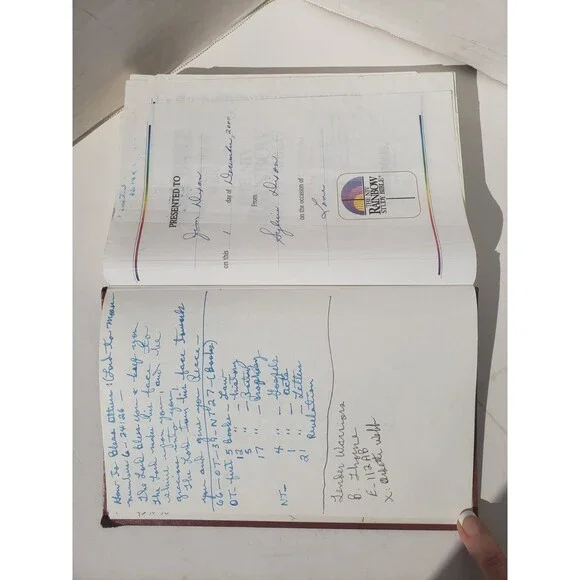 How To Bless Others: (Lord to Moses
numbers 6 - 24:26 -
The Lord bless you & keep you
The Lord make His face to
shine upon you, and be
gracious to you,
The Lord turn His face towards
you and give you Peace -
66 - OT - 39 - NT 27 - (Books)
OT - first 5 Books - Law
12 " - history
5 " - Poetry
17 " - Prophecy
NT - 4 " - Gospels
1 " - Acts
21 " - Letters
Revelation
Lender Warriors
B. Thoene
E. 112AB
X.
PRESENTED TO
Jean Dixon
on this 1 day of December, 2000
From
Sylvia Dixon
on the occasion of
Love
THE NIV
RAINBOW
STUDY BIBLE